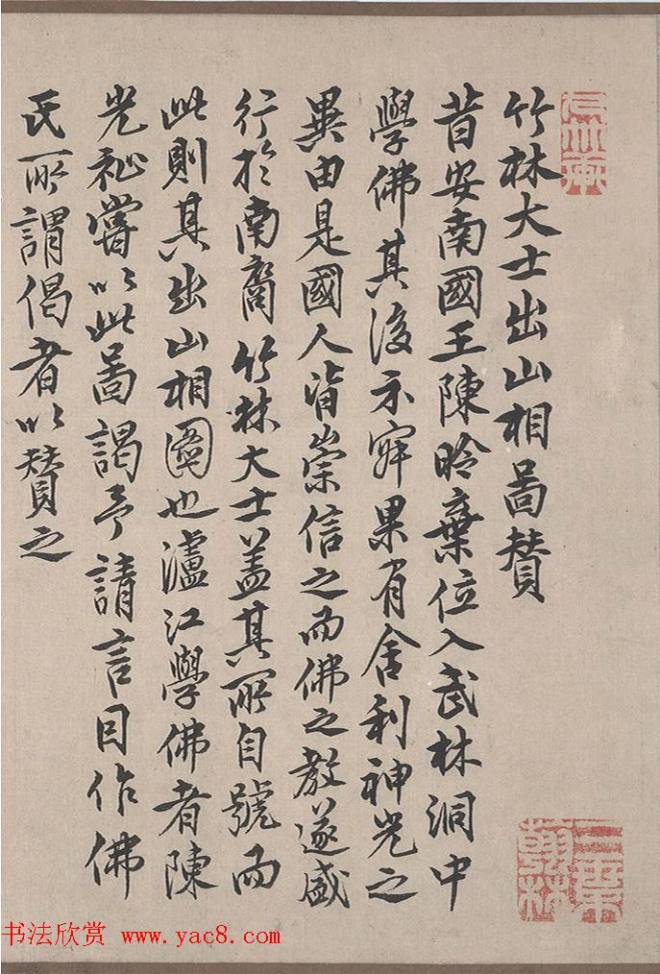 竹林大士出山相啚賛
昔安南國王陳昑棄位入武林洞中
學佛其後示寂果有舍利神光之
異由是國人皆崇信之而佛之教遂盛
行於南裔竹林大士盖其所自號而
此則其出山相圖也瀘江學佛者陳
光祉嘗以此啚謁予請言因作佛
氏所謂偈者以賛之
三葉翰林
书法欣赏 www.yac8.com